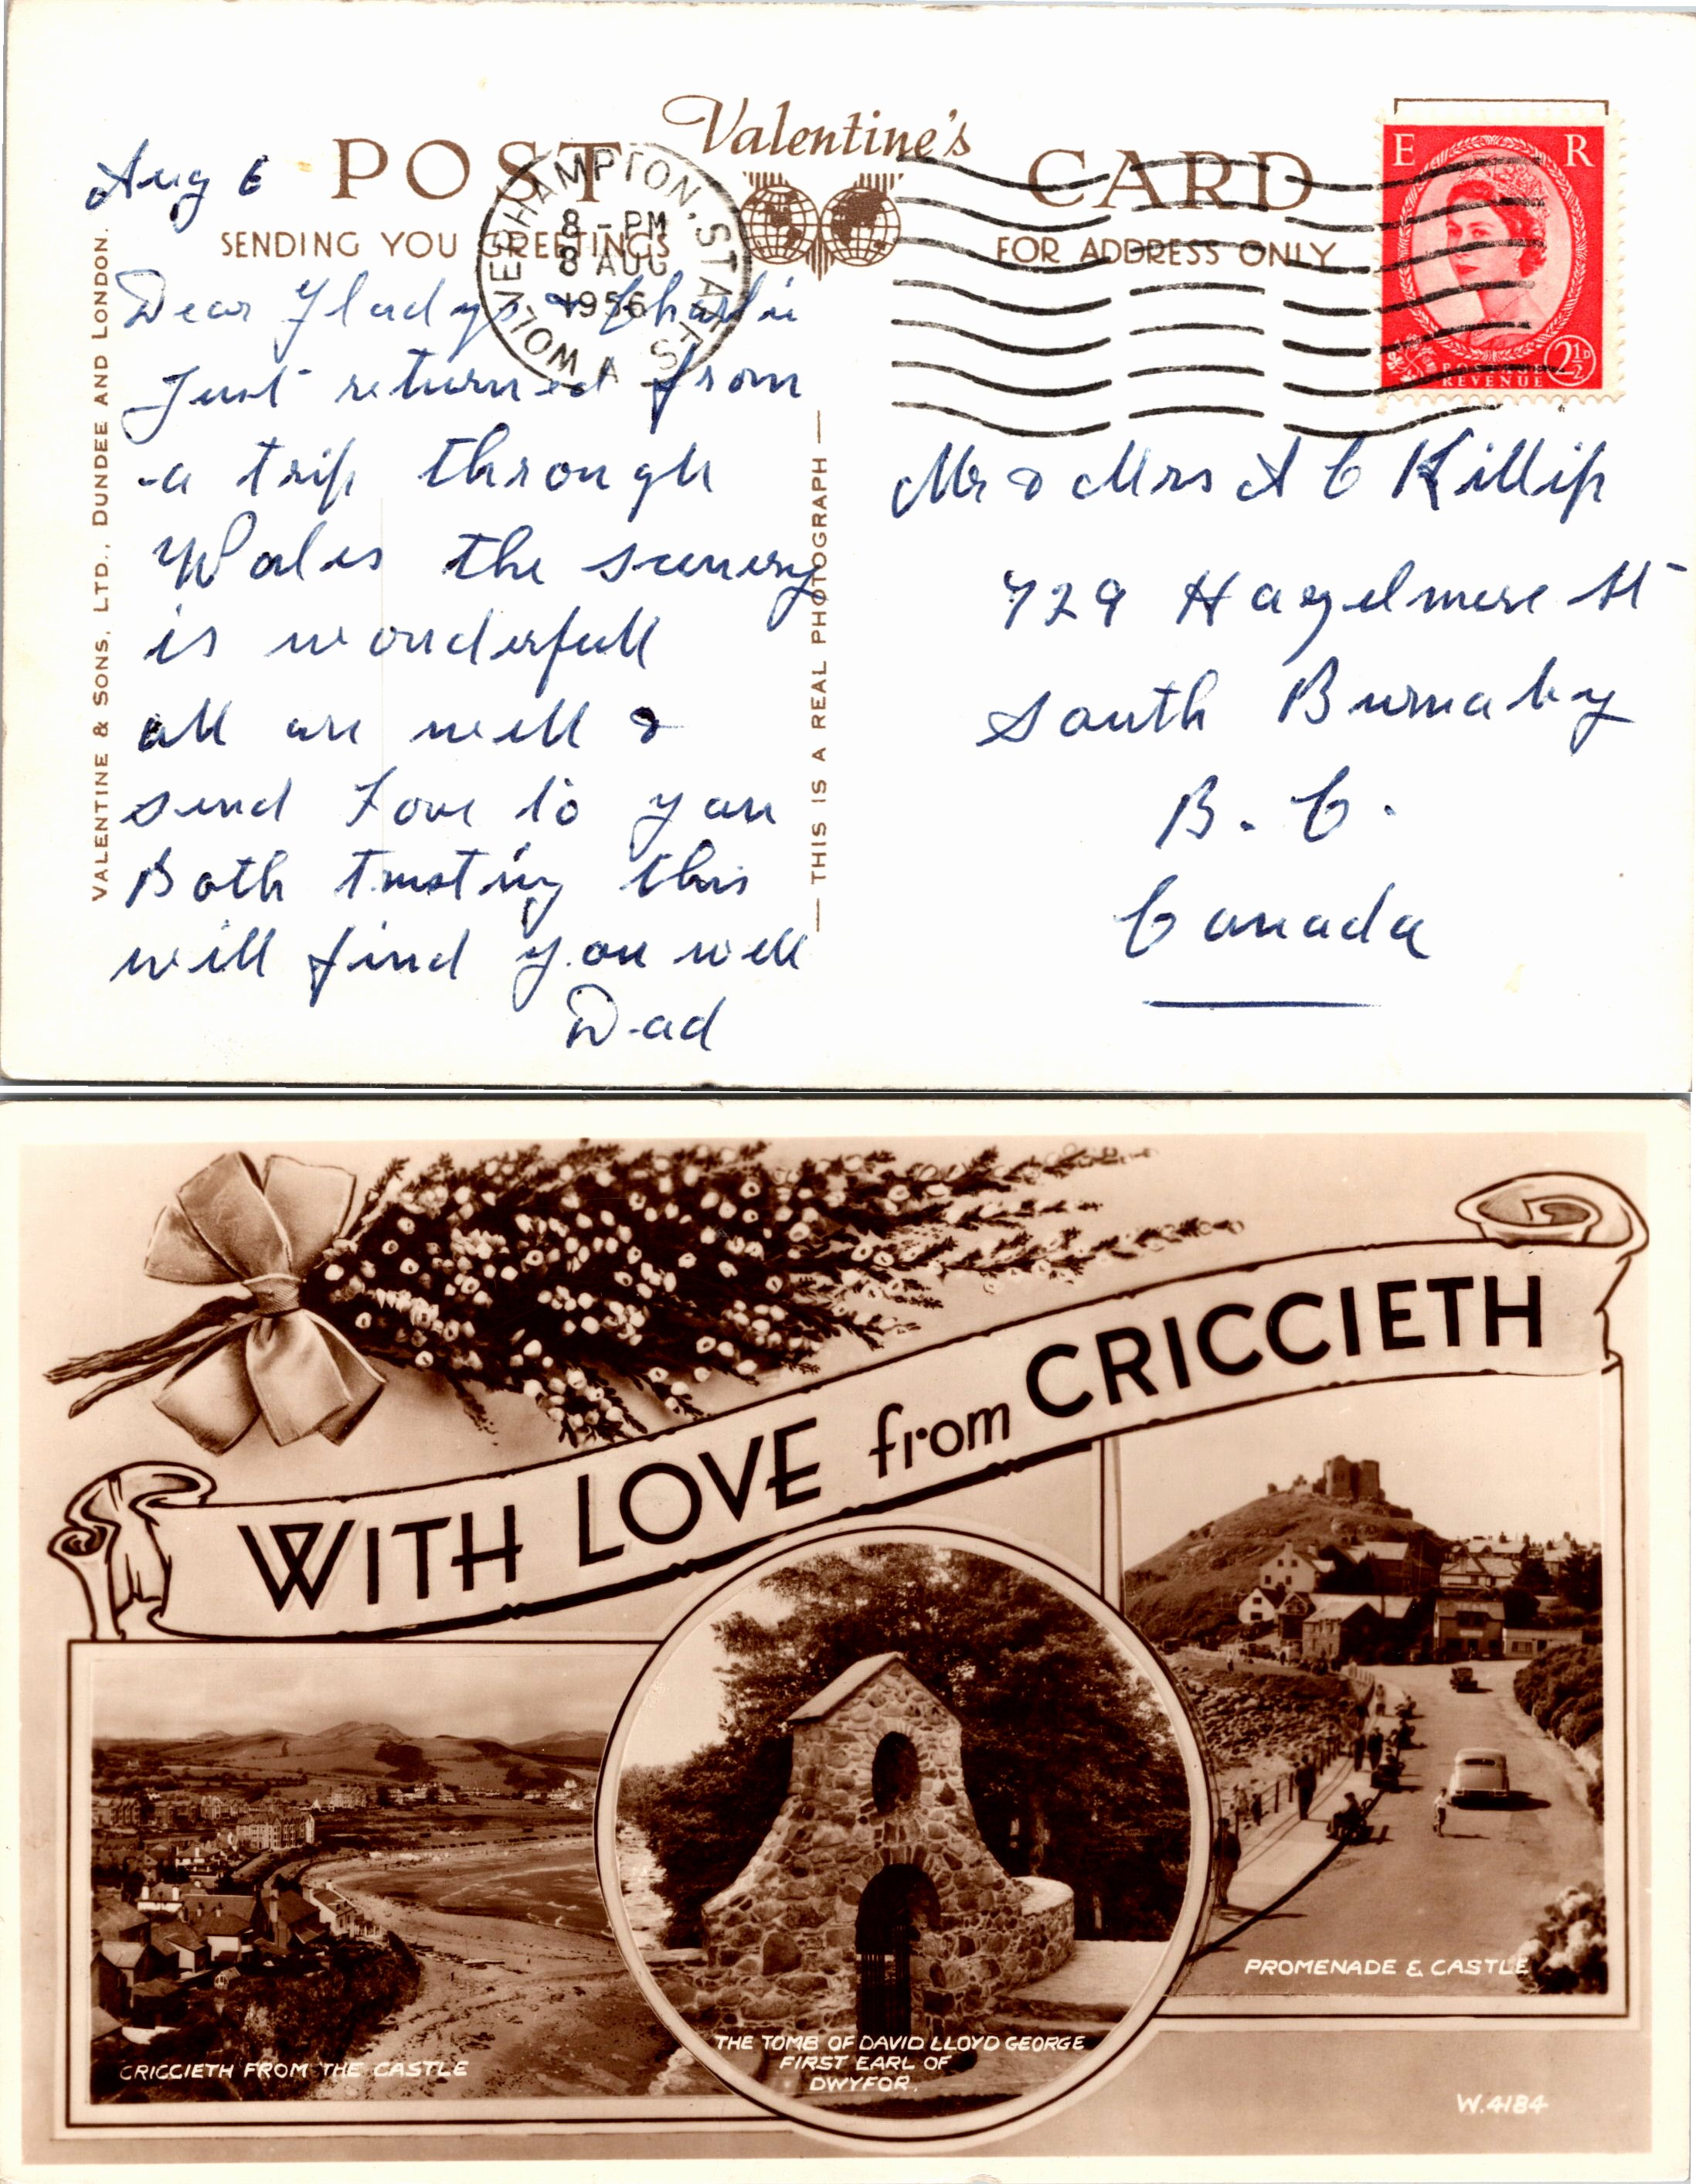 Valentine's
POST CARD
SENDING YOU GREETINGS
FOR ADDRESS ONLY
WOLVERHAMPTON, STAFFS
8 - PM
8 AUG
1956
A
E R
POSTAGE
REVENUE
2½D
VALENTINE & SONS, LTD., DUNDEE AND LONDON.
— THIS IS A REAL PHOTOGRAPH —
Aug 6
Dear Gladys & Charlie
Just returned from
a trip through
Wales the scenery
is wonderfull
all are well &
send Love to you
Both trusting this
will find you well
Dad
Mr & Mrs A C Killip
729 Hazelmere St
South Burnaby
B. C.
Canada
WITH LOVE from CRICCIETH
CRICCIETH FROM THE CASTLE
THE TOMB OF DAVID LLOYD GEORGE
FIRST EARL OF
DWYFOR.
PROMENADE & CASTLE
W.4184